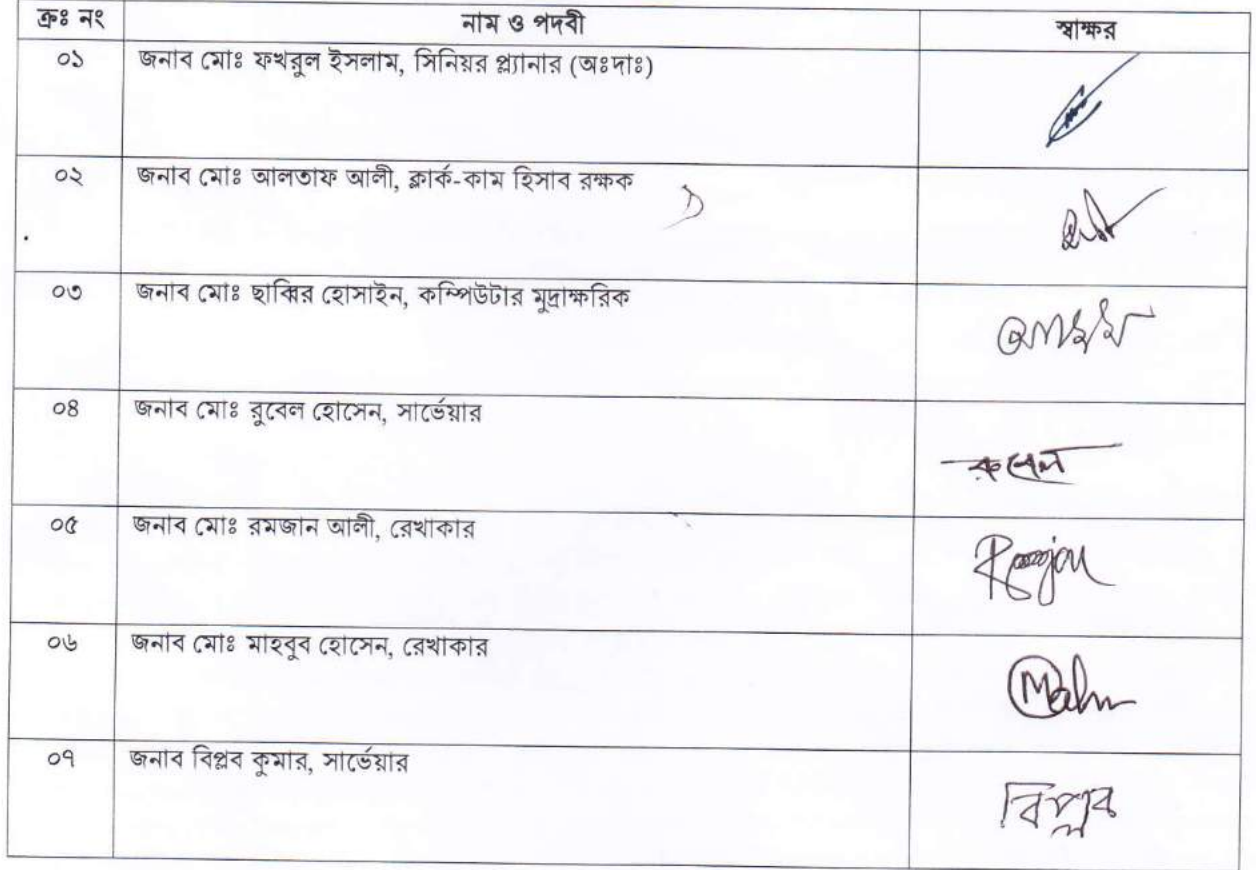 ক্রঃ নং নাম ও পদবী স্বাক্ষর
০১ জনাব মোঃ ফখরুল ইসলাম, সিনিয়র প্ল্যানার (অঃদাঃ)
০২ জনাব মোঃ আলতাফ আলী, ক্লার্ক-কাম হিসাব রক্ষক
০৩ জনাব মোঃ ছাব্বির হোসাইন, কম্পিউটার মুদ্রাক্ষরিক
০৪ জনাব মোঃ রুবেল হোসেন, সার্ভেয়ার
রুবেল
০৫ জনাব মোঃ রমজান আলী, রেখাকার
০৬ জনাব মোঃ মাহবুব হোসেন, রেখাকার
০৭ জনাব বিপ্লব কুমার, সার্ভেয়ার
বিপ্লব